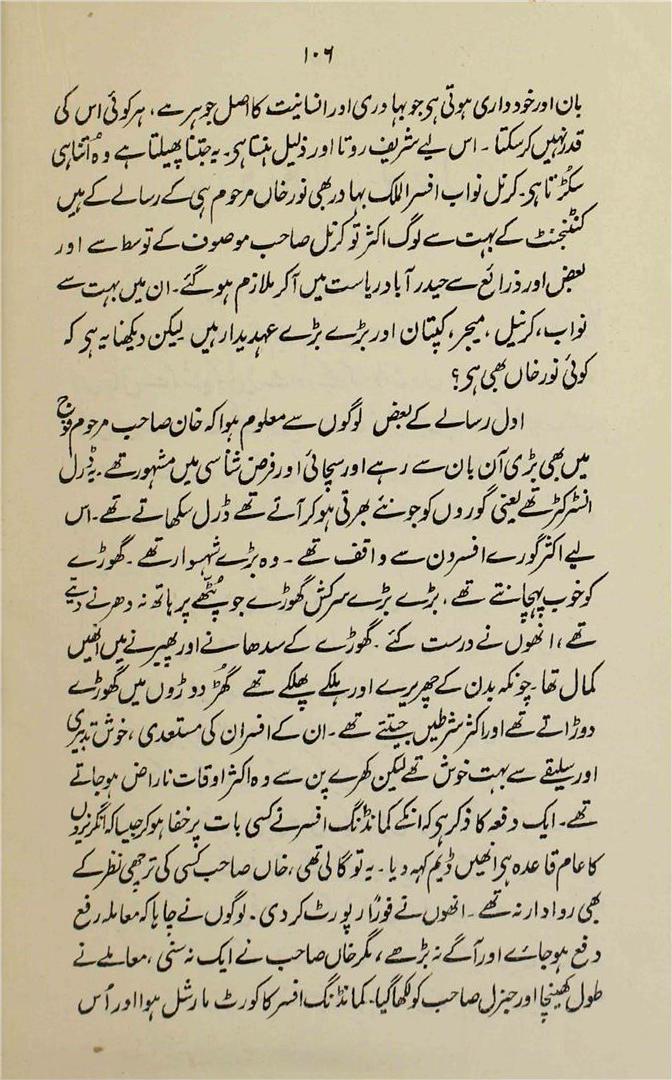 ۱۰۶
بان اور خودداری ہوتی ہی جو بہادری اور انسانیت کا اصل جوہر ہے، ہر کوئی اس کی
قدر نہیں کرسکتا ۔ اس لیے شریف روتا اور ذلیل ہنستا ہی۔ یہ جتنا پھیلتا ہے وہ اُتنا ہی
سکڑتا ہی۔ کرنل نواب افسر الملک بہادر بھی نور خاں مرحوم ہی کے رسالے کے ہیں
کنٹنجنٹ کے بہت سے لوگ اکثر تو کرنل صاحب موصوف کے توسط سے اور
بعض اور ذرائع سے حیدر آباد ریاست میں آکر ملازم ہو گئے۔ ان میں بہت سے
نواب، کرنیل، میجر، کپتان اور بڑے بڑے عہدیدار ہیں لیکن دیکھنا یہ ہی کہ
کوئی نور خاں بھی ہی؟
اول رسالے کے بعض لوگوں سے معلوم ہوا کہ خان صاحب مرحوم فوج
میں بھی بڑی آن بان سے رہے اور سچائی اور فرض شناسی میں مشہور تھے۔ یہ ڈرل
انسٹرکٹر تھے یعنی گوروں کو جو نئے بھرتی ہوکر آتے تھے ڈرل سکھاتے تھے۔ اس
لیے اکثر گورے افسرون سے واقف تھے ۔ وہ بڑے شہسوار تھے ۔ گھوڑے
کو خوب پہچانتے تھے، بڑے بڑے سرکش گھوڑے جو پُٹھے پر ہاتھ نہ دھرنے دیتے
تھے، انھوں نے درست کئے ۔ گھوڑے کے سدھانے اور پھیرنے میں انھیں
کمال تھا۔ چونکہ بدن کے چھریرے اور ہلکے پھلکے تھے گھُڑ دوڑوں میں گھوڑے
دوڑاتے تھے اور اکثر شرطیں جیتتے تھے۔ ان کے افسران کی مستعدی، خوش تدبیری
اور سلیقے سے بہت خوش تھے لیکن کھرے پن سے وہ اکثر اوقات ناراض ہو جاتے
تھے۔ ایک دفعہ کا ذکر ہی کہ انکے کمانڈنگ افسر نے کسی بات پر خفا ہوکر جیسا کہ انگریزوں
کا عام قاعدہ ہی انھیں ڈیم کہہ دیا۔ یہ تو گالی تھی، خاں صاحب کسی کی ترچھی نظر کے
بھی روادار نہ تھے ۔ انھوں نے فوراً رپورٹ کر دی۔ لوگوں نے چاہا کہ معاملہ رفع
دفع ہو جائے اور آگے نہ بڑھے، مگر خاں صاحب نے ایک نہ سنی، معاملے نے
طول کھینچا اور جنرل صاحب کو لکھا گیا۔ کمانڈنگ افسر کا کورٹ مارشل ہوا اور اُس